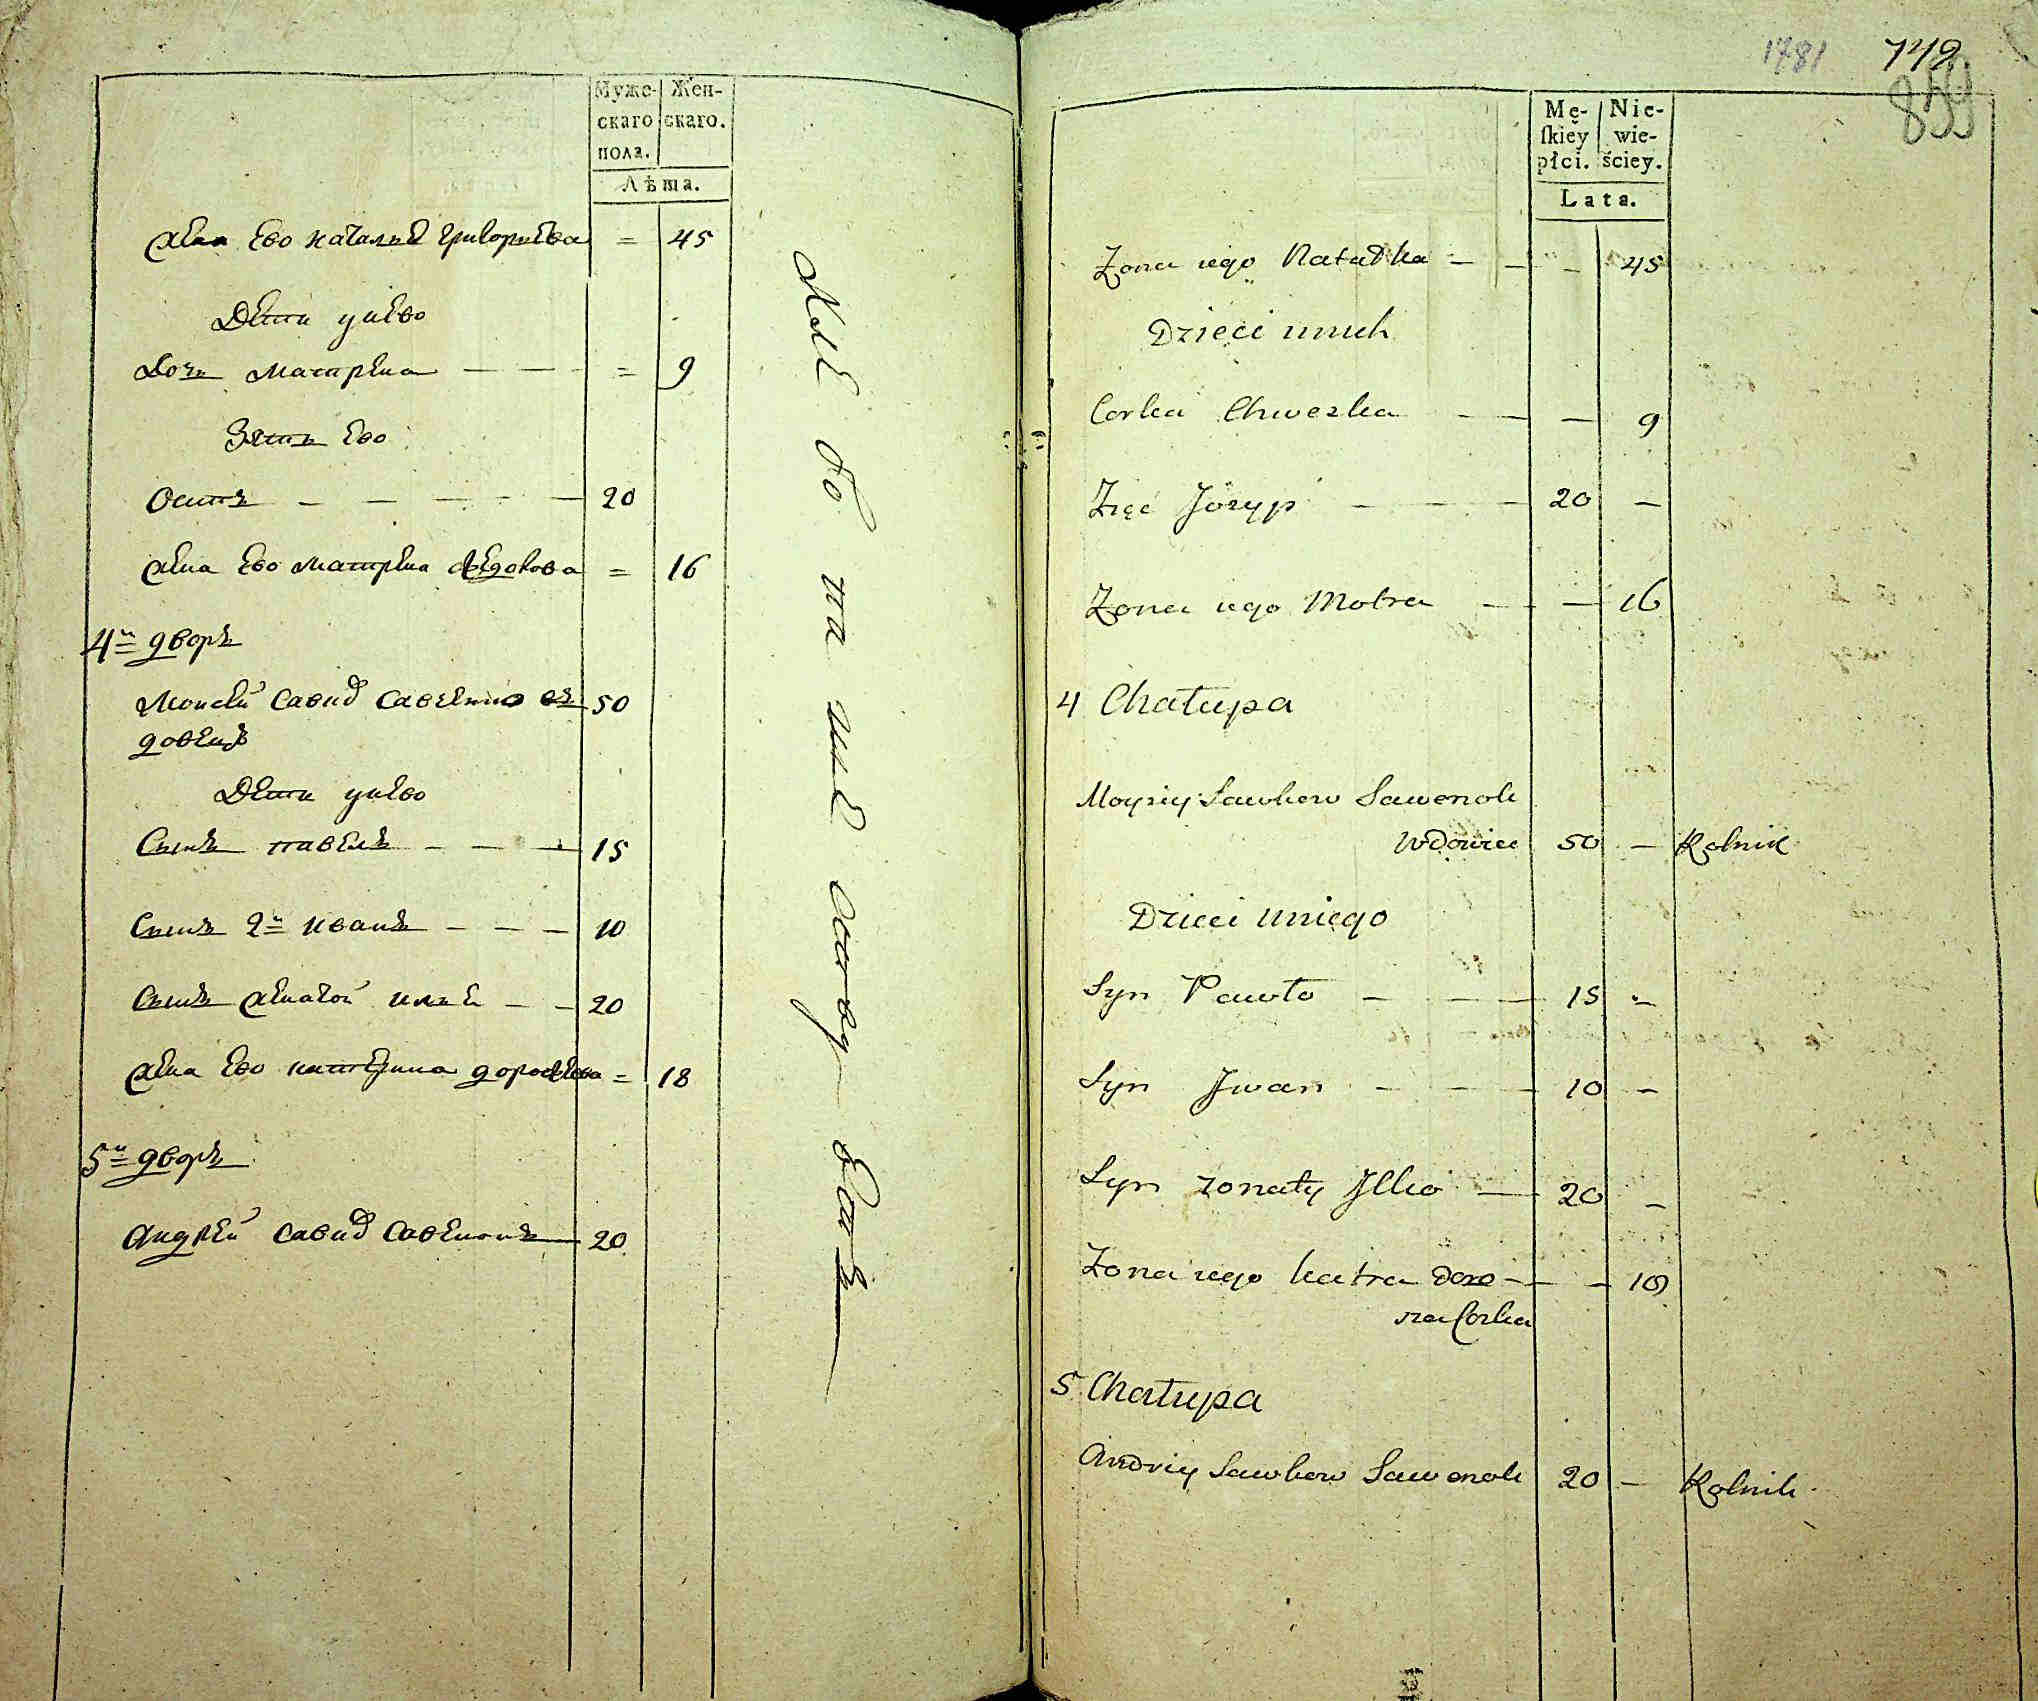 Муже-
скаго
пола.
Жен-
скаго.
Лѣта.
жена ево наталья григорьева = 45
Дети унево
дочь матрена — — = 9
Зять ево
Осипъ — — — — 20
жена ево матрена федорова = 16
4й дворъ
Моисей савич савенко въ 50
довецъ
Дети унево
Сынъ павелъ — — — 15
Сынъ 2й иванъ — — — 10
Сынъ женатой илья — — 20
жена ево катерина дорофеева = 18
5й дворъ
Андрей савич савенокъ — 20
1781 742
859
Mę-
skiey
płci.
Nie-
wie-
ściey.
Lata.
Żona iego Natałka — — — 45
Dzieci unich
Corka Chweska — — — 9
Zięc Jozyp — — — 20 —
Żona iego Motra — — 16
4 Chałupa
Moysiy Sawkow Sawenok
Wdowiec 50 — Rolnik
Dzieci uniego
Syn Pawło — — — 15 —
Syn Jwan — — — 10 —
Syn zonaty Jlko — 20 —
Żona iego katra doro — — 18
5 Chałupa
Andriy Sawkow Sawenok 20 — Rolnik